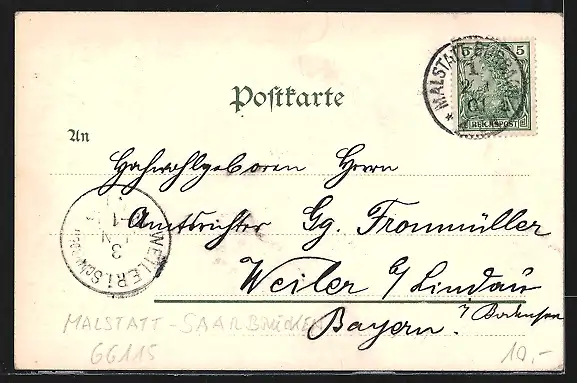 Postkarte
MALSTATT-BURBACH
5 5
REICHSPOST
An
Hochwohlgeboren Herrn
Amtsrichter Gg. Frommüller
WEILER i/Sch
3
1
Weiler b/ Lindau
i/ Bodensee
Bayern.
MALSTATT-SAARBRÜCKEN
66115
10.-